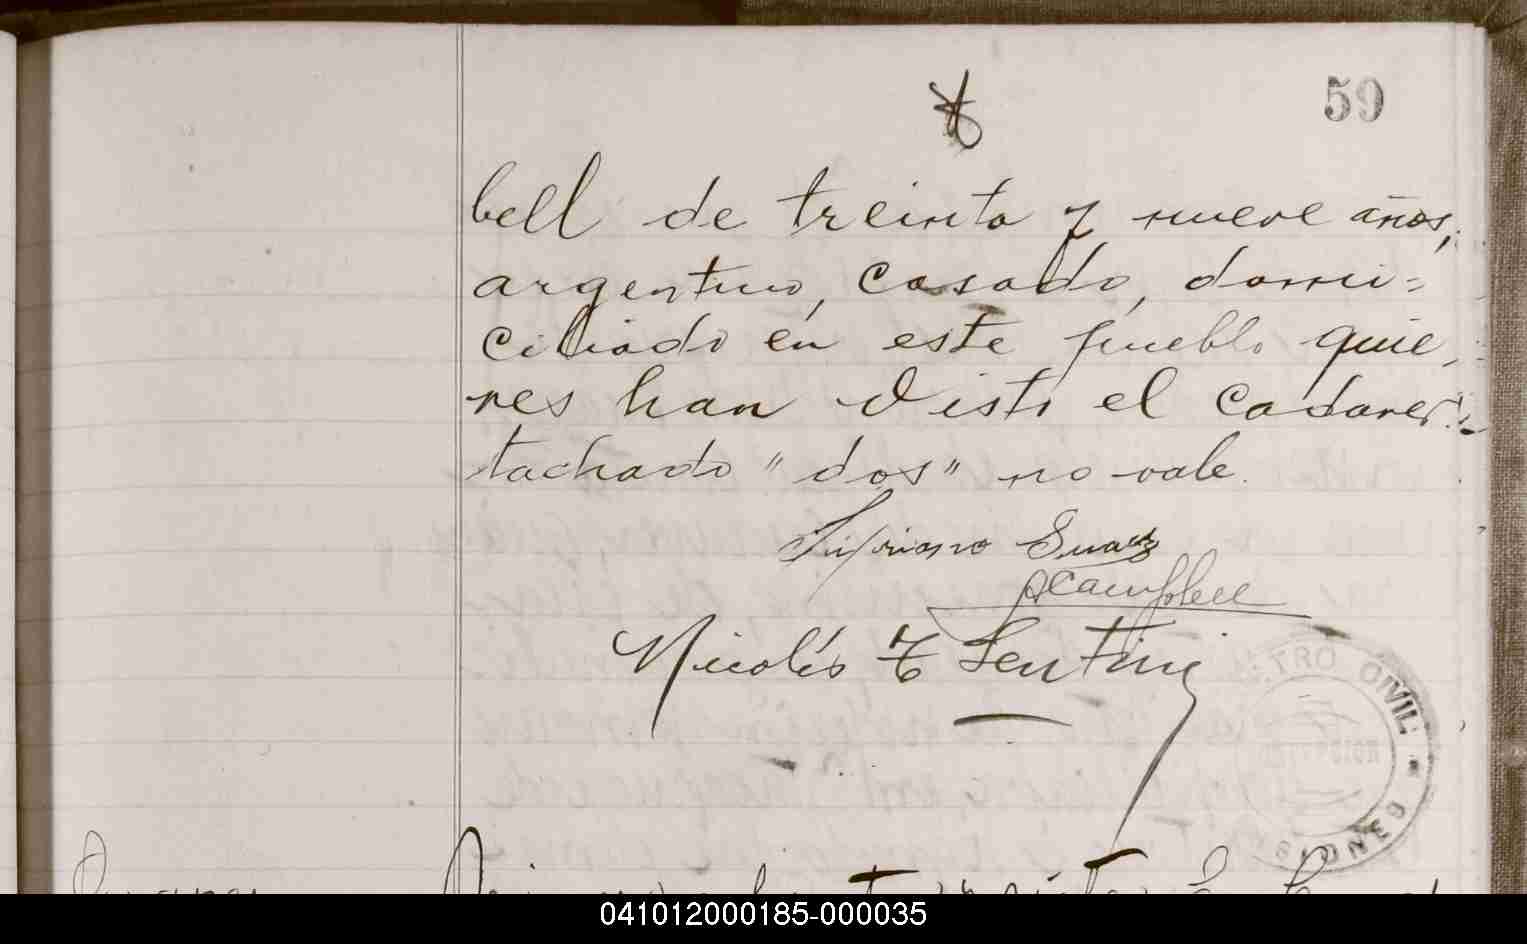 59
bell de treinta y nueve años,
argentino, casado, domi=
ciliado en este pueblo quie,
nes han visto el cadaver.
tachado "dos" no vale.
Sipriano Suarez
Campbell
Nicolás Sentini
TRO CIVIL * MISIONES
041012000185-000035